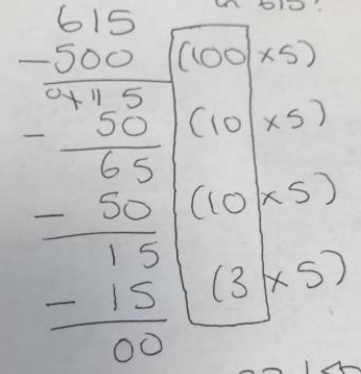 in 615?
615
-500 (100 × 5)
0 1 11 5
- 50 (10 × 5)
65
- 50 (10 × 5)
15
- 15 (3 × 5)
00